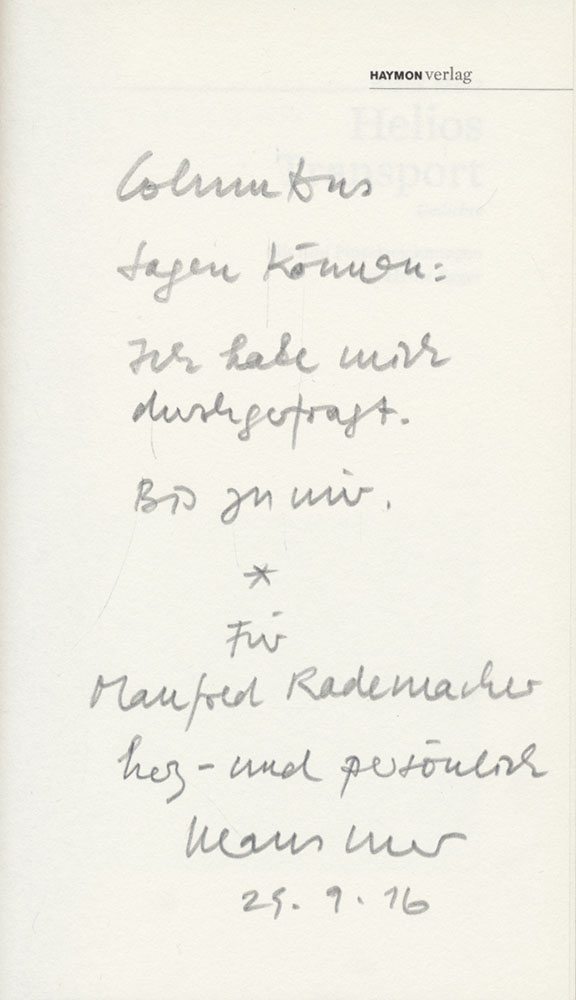 HAYMON verlag
Helios
Transport
Gedichte
Columbus
Sagen können:
Ich habe mich
durchgefragt.
Bis zu mir.
*
Für
Manfred Rademacher
herz- und persönlich
Klaus Merz
25. 9. 16